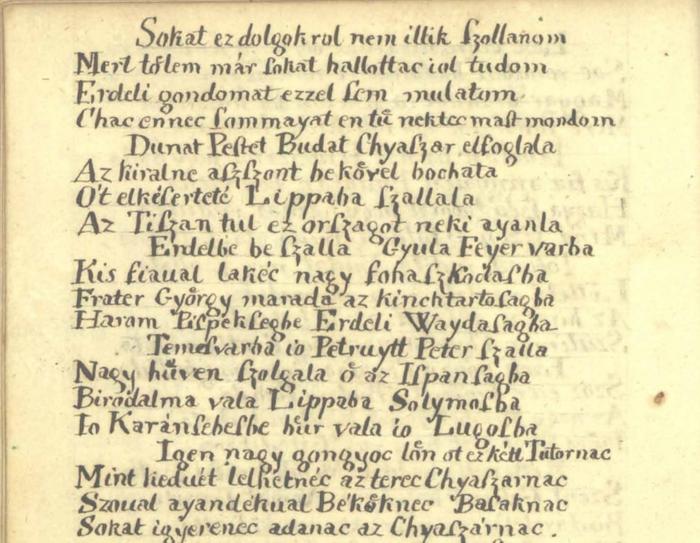 Sokat ez dolgokrol nem illik ſzollanom
Mert tőlem már ſokat hallottac iol tudom
Erdeli gondomat ezzel ſem mulatom
Chac ennec ſommayat en tű nektec maſt mondom
Dunat Peſtet Budat Chyaſzar elfoglala
Az kiralne aſzſzont bekővel bochata
Ót elkéſerteté Lippaba ſzallala
Az Tiſzan tul ez orſzagot neki ayanla
Erdelbe be ſzalla Gyula Feyer varba
Kis fiaual lakéc nagy fohaſzkodaſba
Frater György marada az kinchtartoſagba
Harom Piſpekſegbe Erdeli Waydaſagba
Temeſvarba io Petruytt Peter ſzalla
Nagy hűven ſzolgala ő az Iſpanſagba
Birodalma vala Lippaba Solymoſba
Io Karánſebeſbe hűr vala io Lugoſba
Igen nagy gongyoc lőn ot ez kétt Tutornac
Mint keduét lelhetnéc az terec Chyaſzarnac
Szoual ayandekual Békőknec Baſaknac
Sokat igyerenec adanac az Chyaſzárnac.